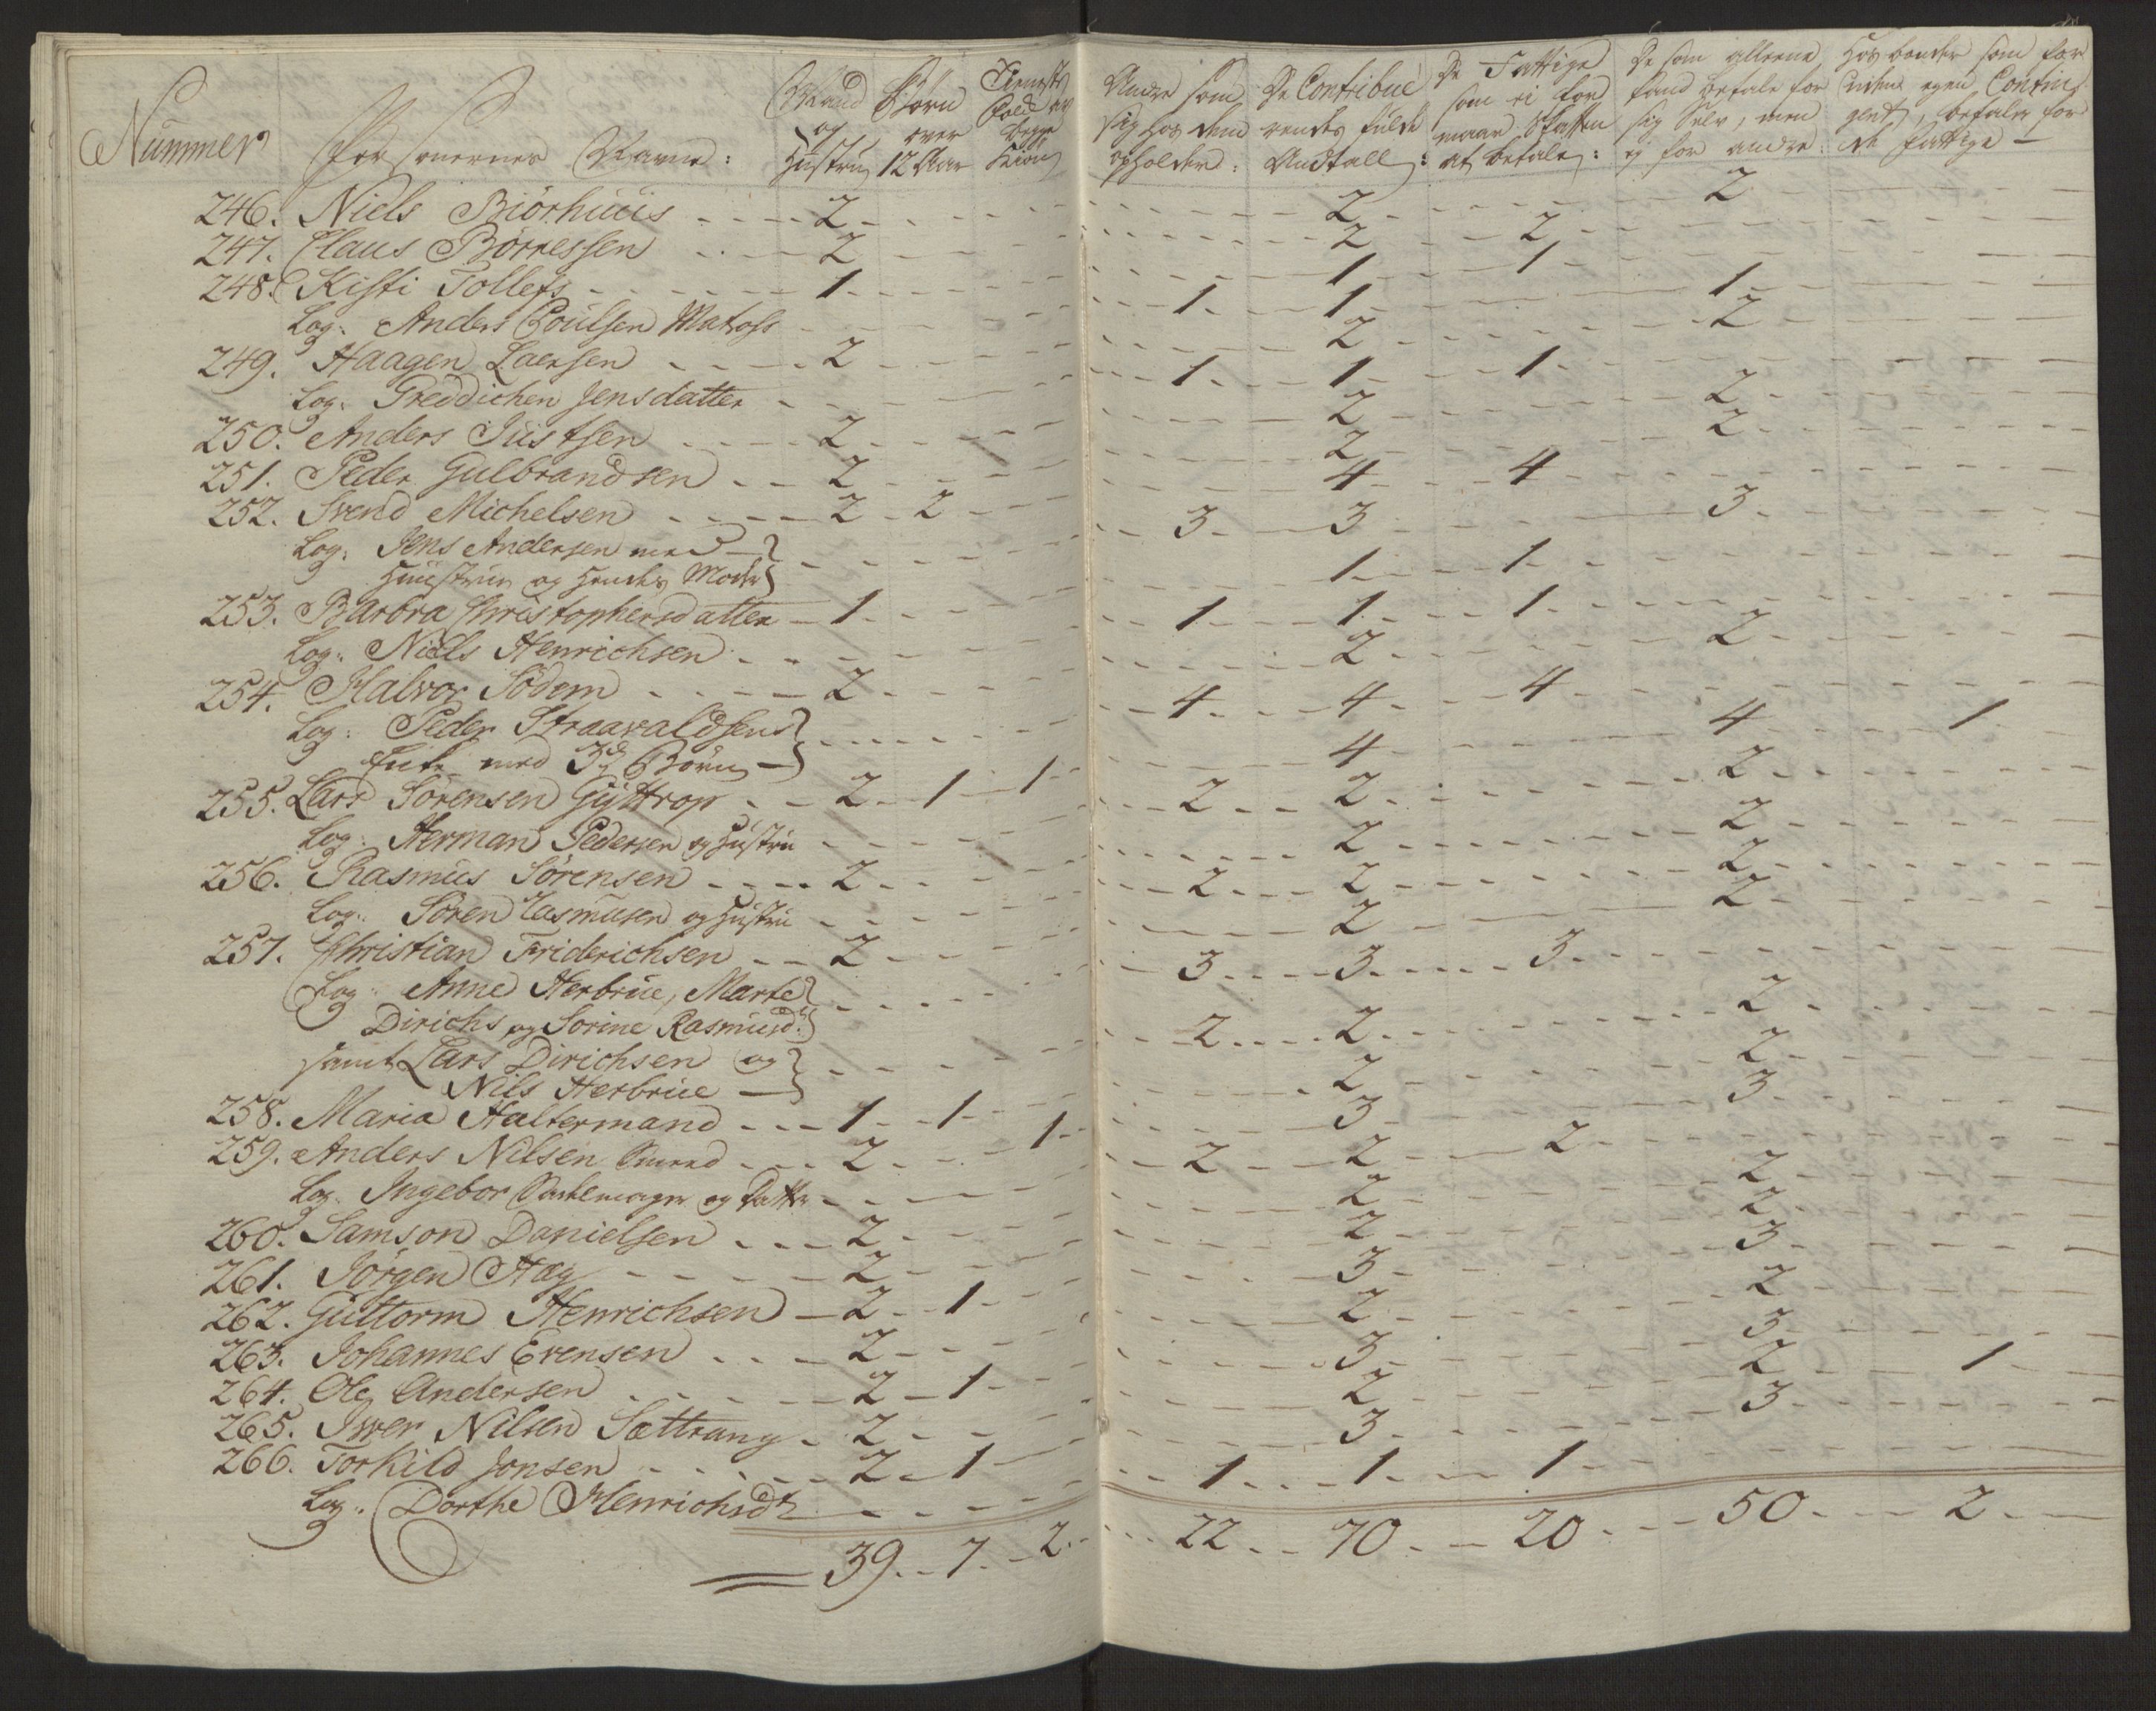 Nummer Personernes Navne: Mand og Hustru Børn over 12 Aar Tieneste Folk av begge Kiøn Andre som sig hos dem opholder: De Contribuerendes fulde Andtall: De Fattige som ei formaar Skatten at betale: De som alleene kand betale for sig Selv, men ej for andre: Hosbonder som foruden egen Contingent, betaler for de fattige —
246. Niels Biörhuus 2 2 2
247. Claus Börressen 2 2 2
248. Kisti Tollefs 1 1 1
Log: Anders Poulsen Matros 1 1 1
249. Haagen Laersen 2 2 2
Log: Freddichen Jensdatter 1 1 1
250. Anders Justsen 2 2 2
251. Peder Gulbrandsen 2 2 2
252. Svend Michelsen 2 2 4 4
Log: Jens Andersen med
Huustrue og hendes Moder 3 3 3
253. Barbra Christophersdatter 1 1 1
Log: Niels Henrichsen 1 1 1
254. Halvor Södem 2 2 2
Log: Peder Straavaldsens
Enke med 3de Börn 4 4 4
255. Lars Sörensen Gÿttrop 2 1 1 4 4 1
Log: Herman Pedersen og Hustru 2 2 2
256. Rasmus Sörensen 2 2 2
Log: Sören Rasmusen og Hustru 2 2 2
257. Christian Friderichsen 2 2 2
Log: Anne Herbrue, Marte
Dirichs og Sorine Rasmusd: 3 3 3
samt Lars Dirichsen og
Nils Herbrue 2 2 2
258. Maria Haltermand 1 1 2 2
259. Anders Nilsen Smed 2 1 3 3
Log: Ingebor og Datter 2 2 2
260. Samson Danielsen 2 2 2
261. Jörgen Hag 2 2 2
262. Guttorm Henrichsen 2 1 3 3
263. Johannes Evensen 2 2 2
264. Ole Andersen 2 1 3 3
265. Iver Nilsen Sættrang 2 2 2 1
266. Torkild Jonsen 2 1 3 3
Log: Dorthe Henrichsdr 1 1 1
39 7 2 22 70 20 50 2